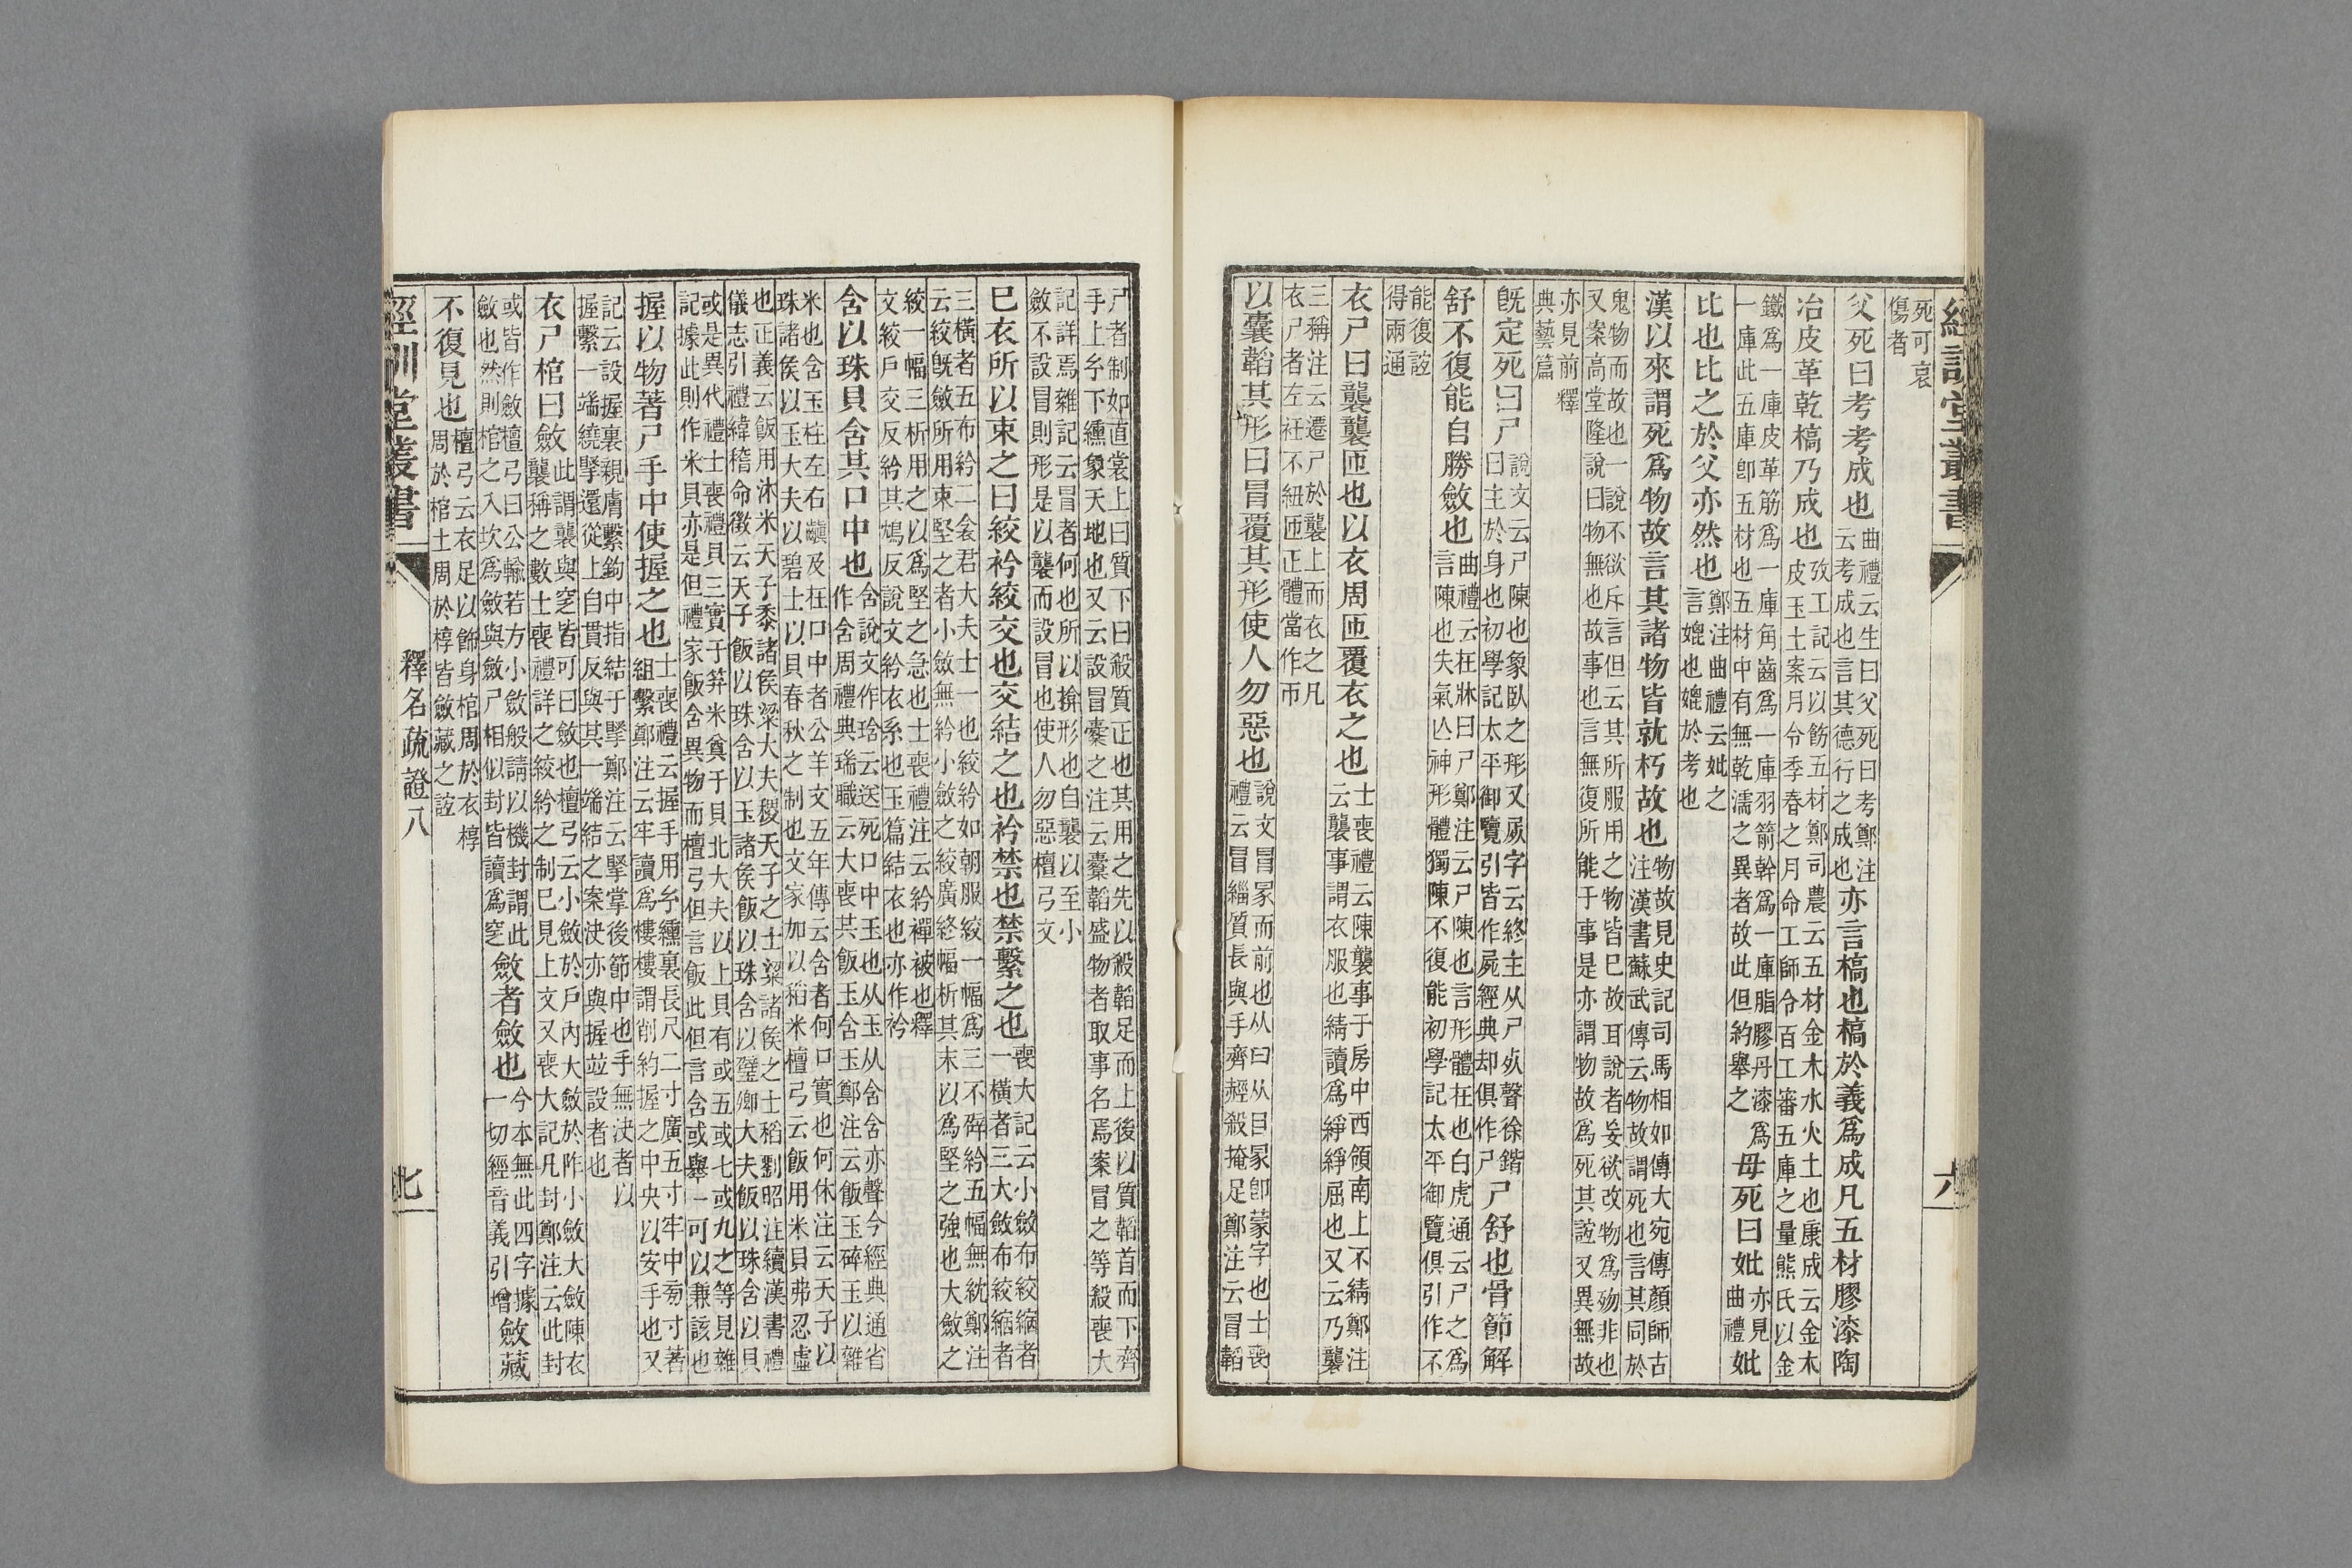 經訓堂叢書
六
死可哀
傷者
父死曰考考成也曲禮云生曰父死曰考鄭注
云考成也言其德行之成也亦言槁也槁於義爲成凡五材膠漆陶
冶皮革乾槁乃成也攷工記云以飭五材鄭司農云五材金木水火土也康成云金木
皮玉土案月令季春之月命工師令百工審五庫之量熊氏以金
鐵爲一庫皮革筋爲一庫角齒爲一庫羽箭幹爲一庫脂膠丹漆爲
一庫此五庫卽五材也五材中有無乾濡之異者故此但約舉之母死曰妣亦見
曲禮妣
比也比之於父亦然也鄭注曲禮云妣之
言媲也媲於考也
漢以來謂死爲物故言其諸物皆就朽故也物故見史記司馬相如傳大宛傳顏師古
注漢書蘇武傳云物故謂死也言其同於
鬼物而故也一說不欲斥言但云其所服用之物皆巳故耳說者妄欲改物爲歾非也
又案高堂隆說曰物無也故事也言無復所能于事是亦謂物故爲死其誼又異無故
亦見前釋
典藝篇
旣定死曰尸說文云尸陳也象臥之形又屍字云終主从尸㱙聲徐鍇
曰主於身也初學記太平御覽引皆作屍經典却俱作尸尸舒也骨節解
舒不復能自勝斂也曲禮云在牀曰尸鄭注云尸陳也言形體在也白虎通云尸之爲
言陳也失氣亾神形體獨陳不復能初學記太平御覽俱引作不
能復誼
得兩通
衣尸曰襲襲匝也以衣周匝覆衣之也士喪禮云陳襲事于房中西領南上不綪鄭注
云襲事謂衣服也綪讀爲絣絣屈也又云乃襲
三稱注云遷尸於襲上而衣之凡
衣尸者左衽不紐匝正體當作帀
以囊韜其形曰冒覆其形使人勿惡也說文冒冡而前也从曰从目冡卽蒙字也士喪
禮云冒緇質長與手齊䞓殺掩足鄭注云冒韜
尸者制如直裳上曰質下曰殺質正也其用之先以殺韜足而上後以質韜首而下齊
手上糸下纁象天地也又云設冒櫜之注云櫜韜盛物者取事名焉案冒之等殺喪大
記詳焉雜記云冒者何也所以揜形也自襲以至小
斂不設冒則形是以襲而設冒也使人勿惡檀弓文
巳衣所以束之曰絞衿絞交也交結之也衿禁也禁繫之也喪大記云小斂布絞縮者
一橫者三大斂布絞縮者
三橫者五布紟二衾君大夫士一也絞紟如朝服絞一幅爲三不辟紟五幅無紞鄭注
云絞旣斂所用束堅之者小斂無紟小斂之絞廣終幅析其末以爲堅之強也大斂之
絞一幅三析用之以爲堅之急也士喪禮注云紟禪被也釋
文絞戶交反紟其鴆反說文紟衣系也玉篇結衣也亦作衿
含以珠貝含其口中也含說文作琀云送死口中玉也从玉从含含亦聲今經典通省
作含周禮典瑞職云大喪其飯玉含玉鄭注云飯玉碎玉以雜
米也含玉柱左右齻及在口中者公羊文五年傳云含者何口實也何休注云天子以
珠諸侯以玉大夫以碧士以貝春秋之制也文家加以稻米檀弓云飯用米貝弗忍虛
也正義云飯用沐米天子黍諸侯粱大夫稷天子之士粱諸侯之士稻劉昭注續漢書禮
儀志引禮緯稽命徵云天子飯以珠含以玉諸侯飯以珠含以璧卿大夫飯以珠含以貝
或是異代禮士喪禮貝三實于筓米奠于貝北大夫以上貝有或五或七或九之等見雜
記據此則作米貝亦是但禮家飯含異物而檀弓但言飯此但言含或舉一可以兼該也
握以物著尸手中使握之也士喪禮云握手用糸纁裏長尺二寸廣五寸牢中旁寸著
組繫鄭注云牢讀爲樓樓謂削約握之中央以安手也又
記云設握裏親膚繫鉤中指結于掔鄭注云掔掌後節中也手無決者以
握繫一端繞掔還從上自貫反與其一端結之案決亦與握竝設者也
衣尸棺曰斂此謂襲與窆皆可曰斂也檀弓云小斂於戶內大斂於阼小斂大斂陳衣
襲稱之數士喪禮詳之絞紟之制巳見上文又喪大記凡封鄭注云此封
或皆作斂檀弓曰公輸若方小斂般請以機封謂此
斂也然則棺之入坎爲斂與斂尸相似封皆讀爲窆斂者斂也今本無此四字據
一切經音義引增斂藏
不復見也檀弓云衣足以飾身棺周於衣椁
周於棺土周於椁皆斂藏之誼
經訓堂叢書
釋名疏證八
七